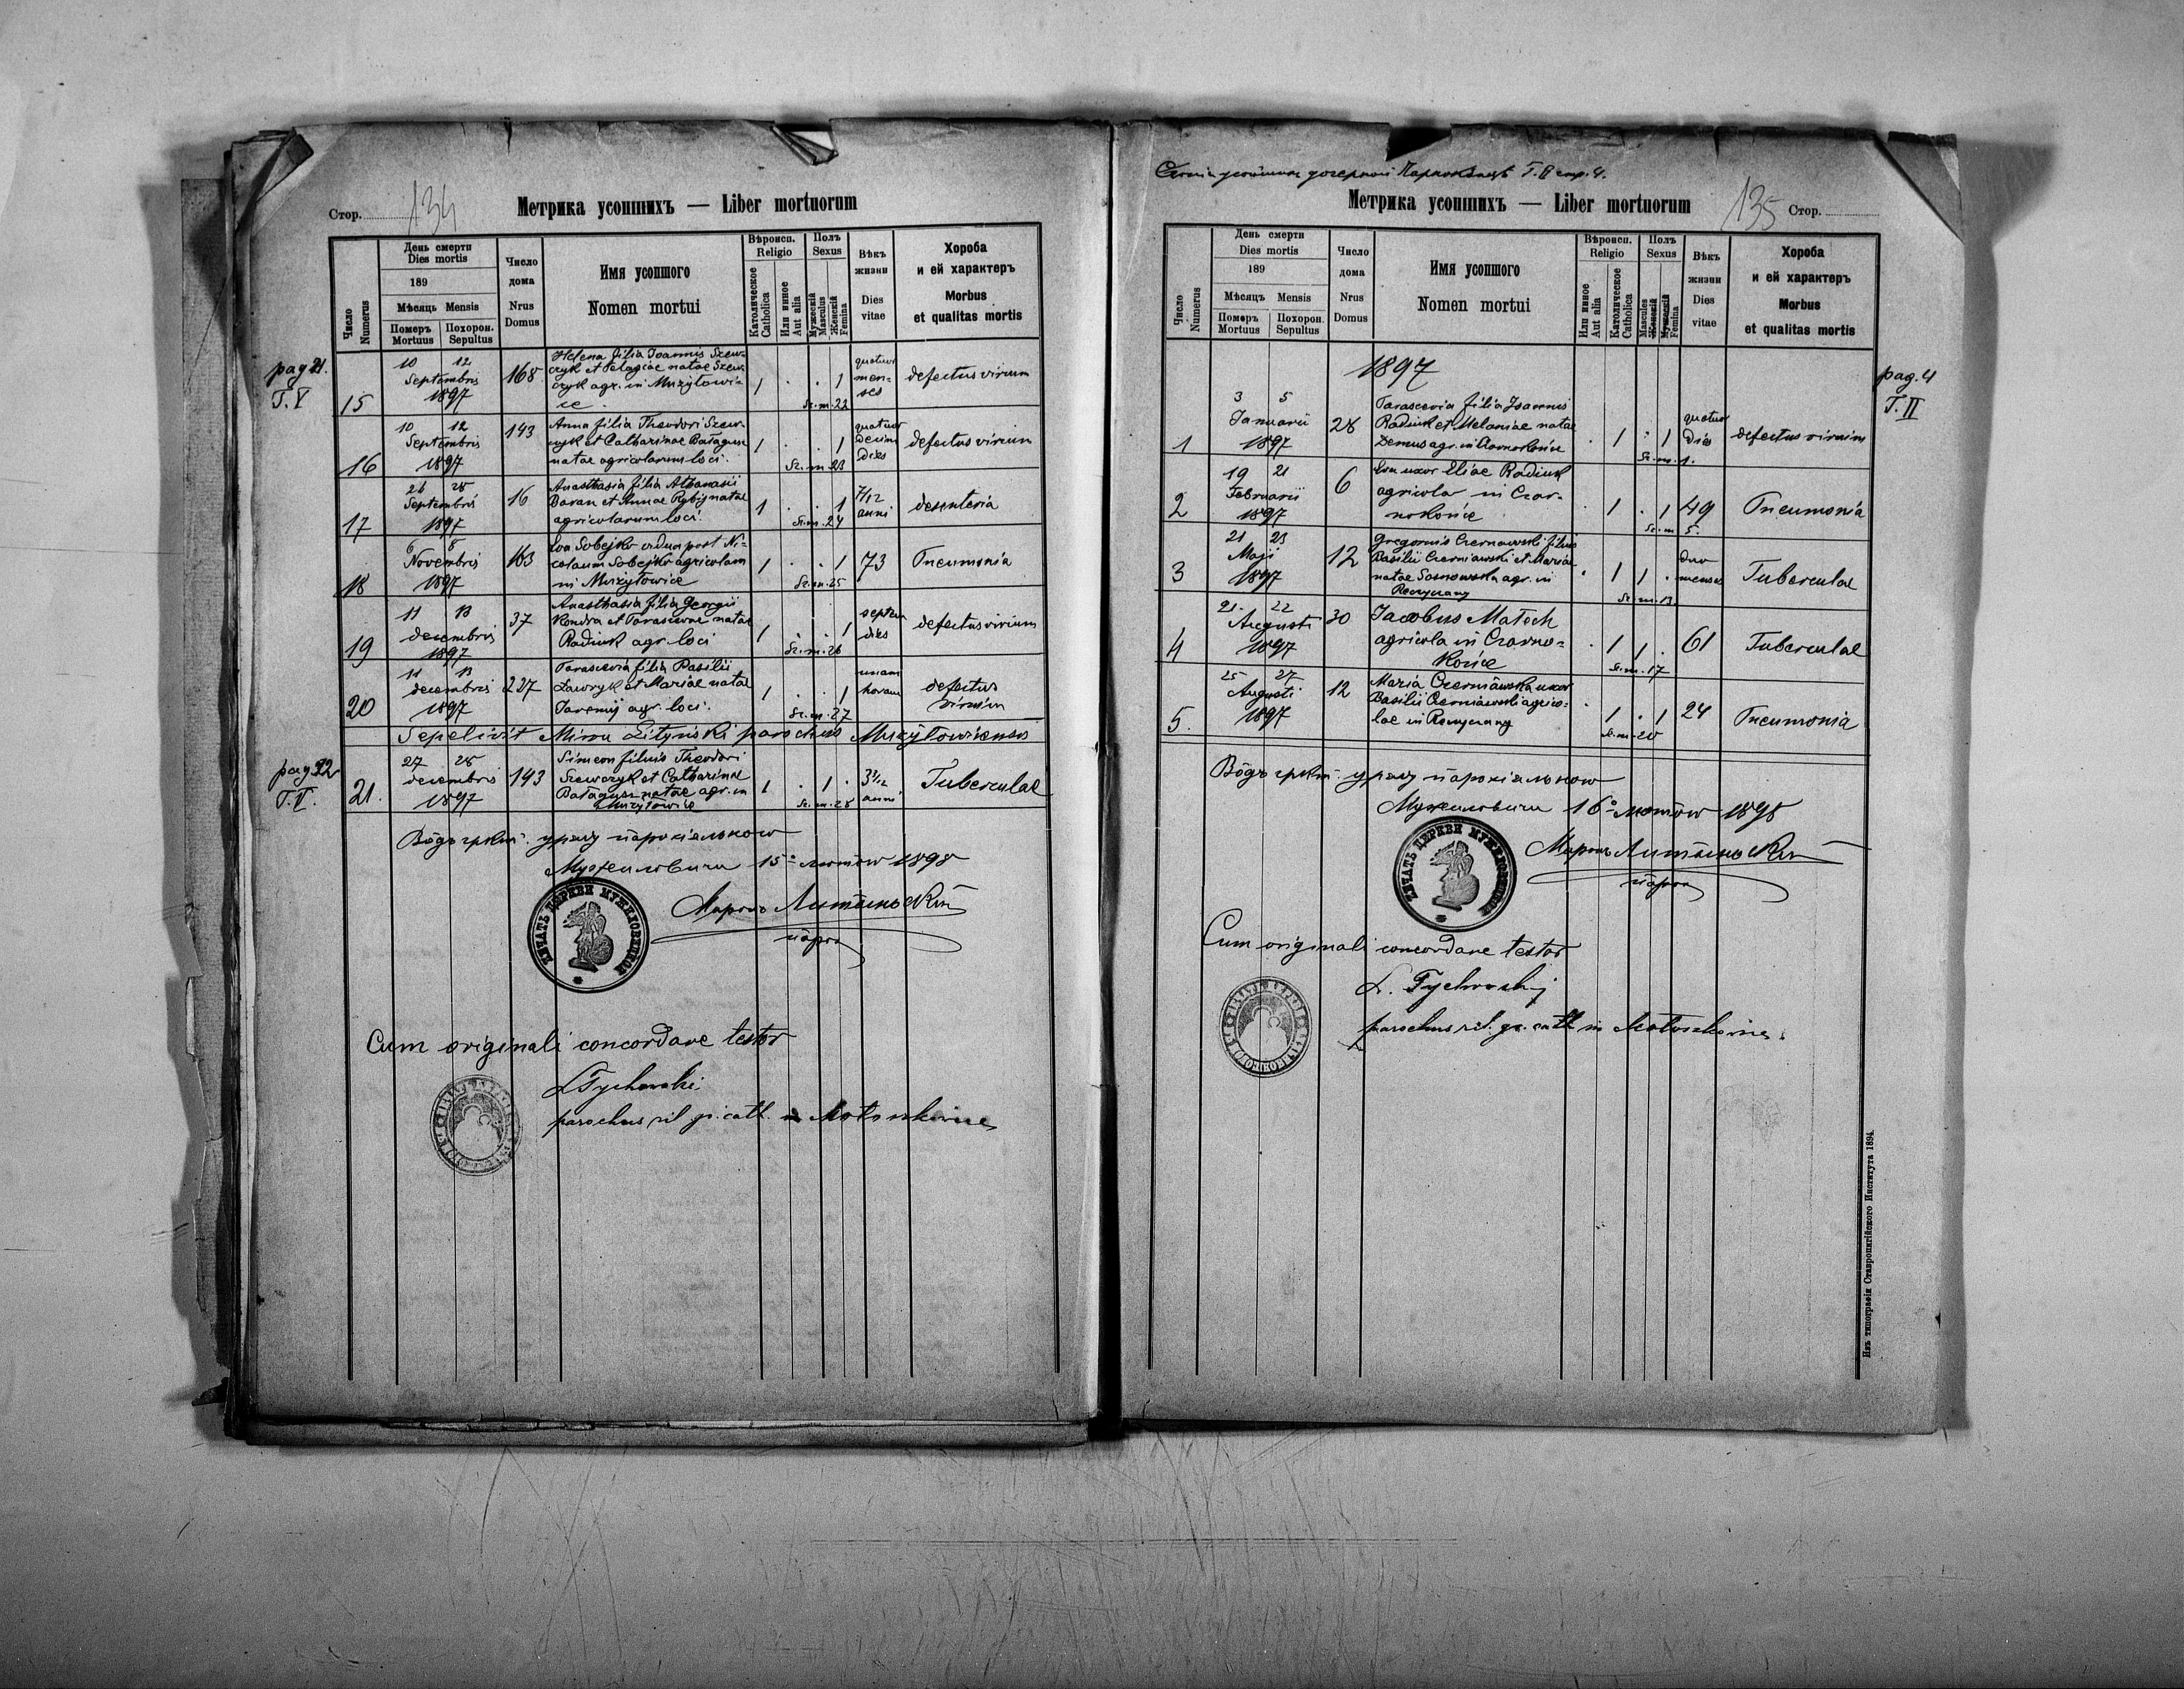 Стор. 134
Метрика усопшихъ — Liber mortuorum
Число Numerus
День смерти
Dies mortis
189
Мѣсяць Mensis
Померъ Mortuus
Похорон. Sepultus
Число дома
Nrus Domus
Имя усопшого
Nomen mortui
Вѣроисп. Religio
Католическое Catholica
Или инное Aut alia
Полъ Sexus
Мужескій Masculus
Женскій Femina
Вѣкъ жизни
Dies vitae
Хороба и ей характеръ
Morbus et qualitas mortis
pag 21.
T. V
15
10 12
Septembris
1897
168
Helena filia Joannis Szew-
czyk et Pelagiae natae Szew-
czyk agr. in Mużyłowi-
ce.
1 . . 1
Sr. m. 22
quatuor
men-
ses
defectus virium
16
10 12
Septembris
1897
143
Anna filia Theodori Szew-
czyk et Catharinae Batagusz
natae agricolarum loci.
1 . . 1
Sr. m. 23
quatuor
decim
dies
defectus virium
17
26 28
Septembris
1897
16
Anasthasia filia Athanasii
Baran et Annae Rybij natae
agricolarum loci.
1 . . 1
Sr. m. 24
7/12
anni
desenteria
18
6 8
Novembris
1897
163
Eva Sobejko vidua post Ni-
colaum Sobejko agricolam
in Mużyłowice
1 . . 1
Sr. m. 25
73
Pneumonia
19
11 13
decembris
1897
37
Anasthasia filia Georgii
Kondra et Parasceviae natae
Radiuk agr. loci
1 . . 1
Sr. m. 26
septem
dies
defectus virium
20
11 13
decembris
1897
227
Parascevia filia Basilii
Ławryk et Mariae natae
Jaremij agr. loci.
1 . . 1
Sr. m. 27
unam
horam
defectus
virium
Sepelivit Miron Lityński parochus Mużyłowicensis
pag 22
T. V.
21.
27 28
decembris
1897
143
Simeon filius Theodori
Szewczyk et Catharinae
Batagusz natae agr. in
Mużyłowice
1 . 1 .
Sr. m. 28
3 1/12
anni
Tuberculae
Вôдъ гр. кат. уряду парохіяльного
Мужиловичи 15го лютого 1898
Миронъ Литыньскій
парох
ПЕЧАТЬ ЦЕРКВИ МУЖИЛОВЕЦКОИ
Cum originali concordare testor
L Tychowski
parochus rit. gr. cath. in Mołoszkowice
Т. II стр. 4.
Метрика усопшихъ — Liber mortuorum
135 Стор.
Число Numerus
День смерти
Dies mortis
189
Мѣсяцъ Mensis
Померъ Mortuus
Похорон. Sepultus
Число дома
Nrus Domus
Имя усопшого
Nomen mortui
Вѣроисп. Religio
Или инное Aut alia
Католическое Catholica
Полъ Sexus
Masculus Женскій
Мужескій Femina
Вѣкъ жизни
Dies vitae
Хороба и ей характеръ
Morbus et qualitas mortis
1897
pag. 4
T. II
1
3 5
Januarii
1897
28
Parascevia filia Joannis
Radiuk et Melaniae natae
Demus agr. in Czarnokońce
. 1 . 1
Sr. m. 1.
quatuor
dies
defectus virium
2
19 21
Februarii
1897
6
Eva uxor Eliae Radiuk
agricolae in Czar-
nokońce
. 1 . 1
Sr. m. 5.
49
Pneumonia
3
21 23
Maji
1897
12
Gregorius Czerniawski filius
Basilii Czerniawski et Mariae
natae Sosnowska agr. in
Reczyczany
. 1 1 .
Sr. m. 13.
duo
menses
Tuberculae
4
21. 22
Augusti
1897
30
Jacobus Małech
agricola in Czarno-
końce
. 1 1 .
Sr. m. 17
61
Tuberculae
5.
25 27
Augusti
1897
12
Maria Czerniawska uxor
Basilii Czerniawski agrico-
lae in Reczyczany
. 1 . 1
Sr. m. 20
24
Pneumonia
Вôдъ гр. кат. уряду парохіяльного
Мужиловичи 16го лютого 1898
Миронъ Литыньскій
парох
ПЕЧАТЬ ЦЕРКВИ МУЖИЛОВЕЦКОИ
Cum originali concordare testor
L. Tychowskij
parochus rit. gr. cath in Mołoszkowice.
Изъ типографіи Ставропигійского Института 1894.